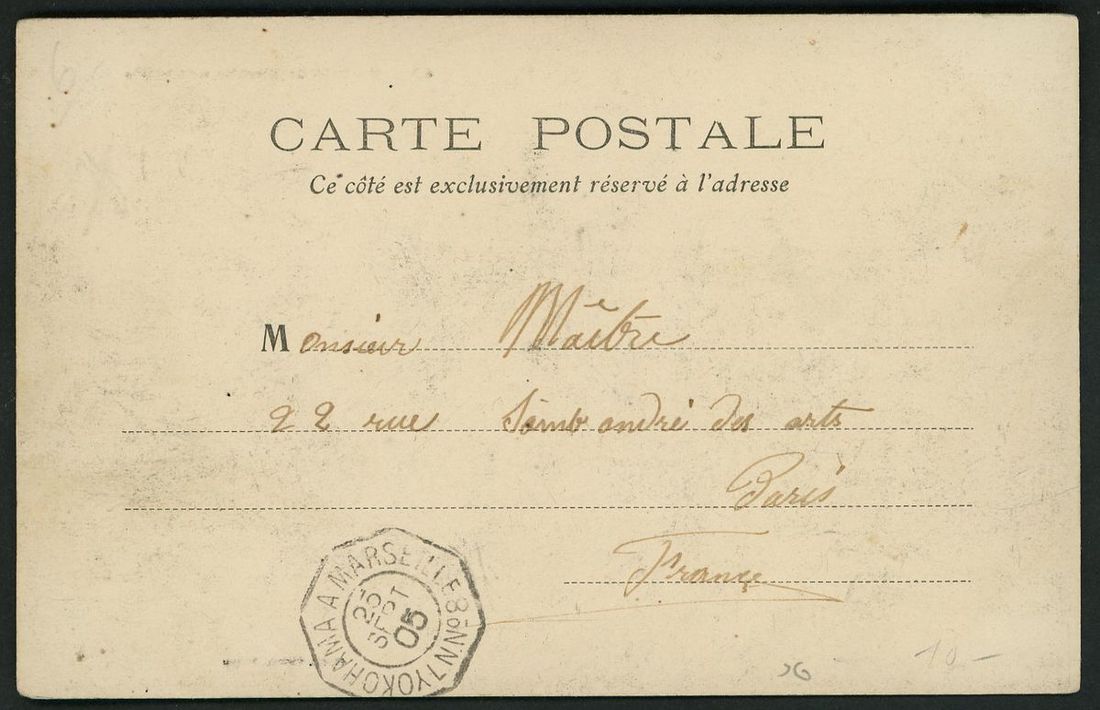 CARTE POSTALE
Ce côté est exclusivement réservé à l'adresse
Monsieur Maître
22 rue Saint andré des arts
Paris
France
YOKOHAMA A MARSEILLE LN Nº8
25
SEPT
05
10 -